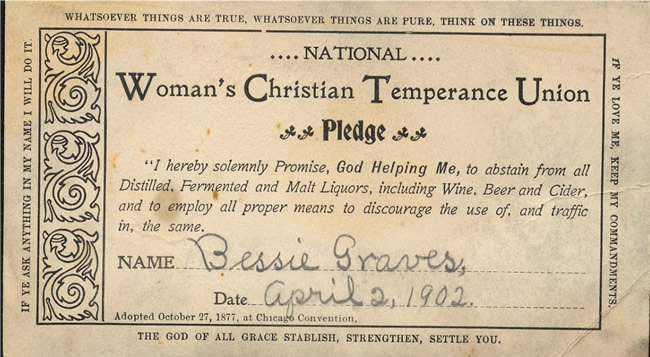 WHATSOEVER THINGS ARE TRUE, WHATSOEVER THINGS ARE PURE, THINK ON THESE THINGS.
IF YE ASK ANYTHING IN MY NAME I WILL DO IT.
.... NATIONAL ....
Woman's Christian Temperance Union
Pledge
"I hereby solemnly Promise, God Helping Me, to abstain from all
Distilled, Fermented and Malt Liquors, including Wine, Beer and Cider,
and to employ all proper means to discourage the use of, and traffic
in, the same.
NAME Bessie Graves,
Date April 2, 1902.
Adopted October 27, 1877, at Chicago Convention,
IF YE LOVE ME, KEEP MY COMMANDMENTS.
THE GOD OF ALL GRACE STABLISH, STRENGTHEN, SETTLE YOU.